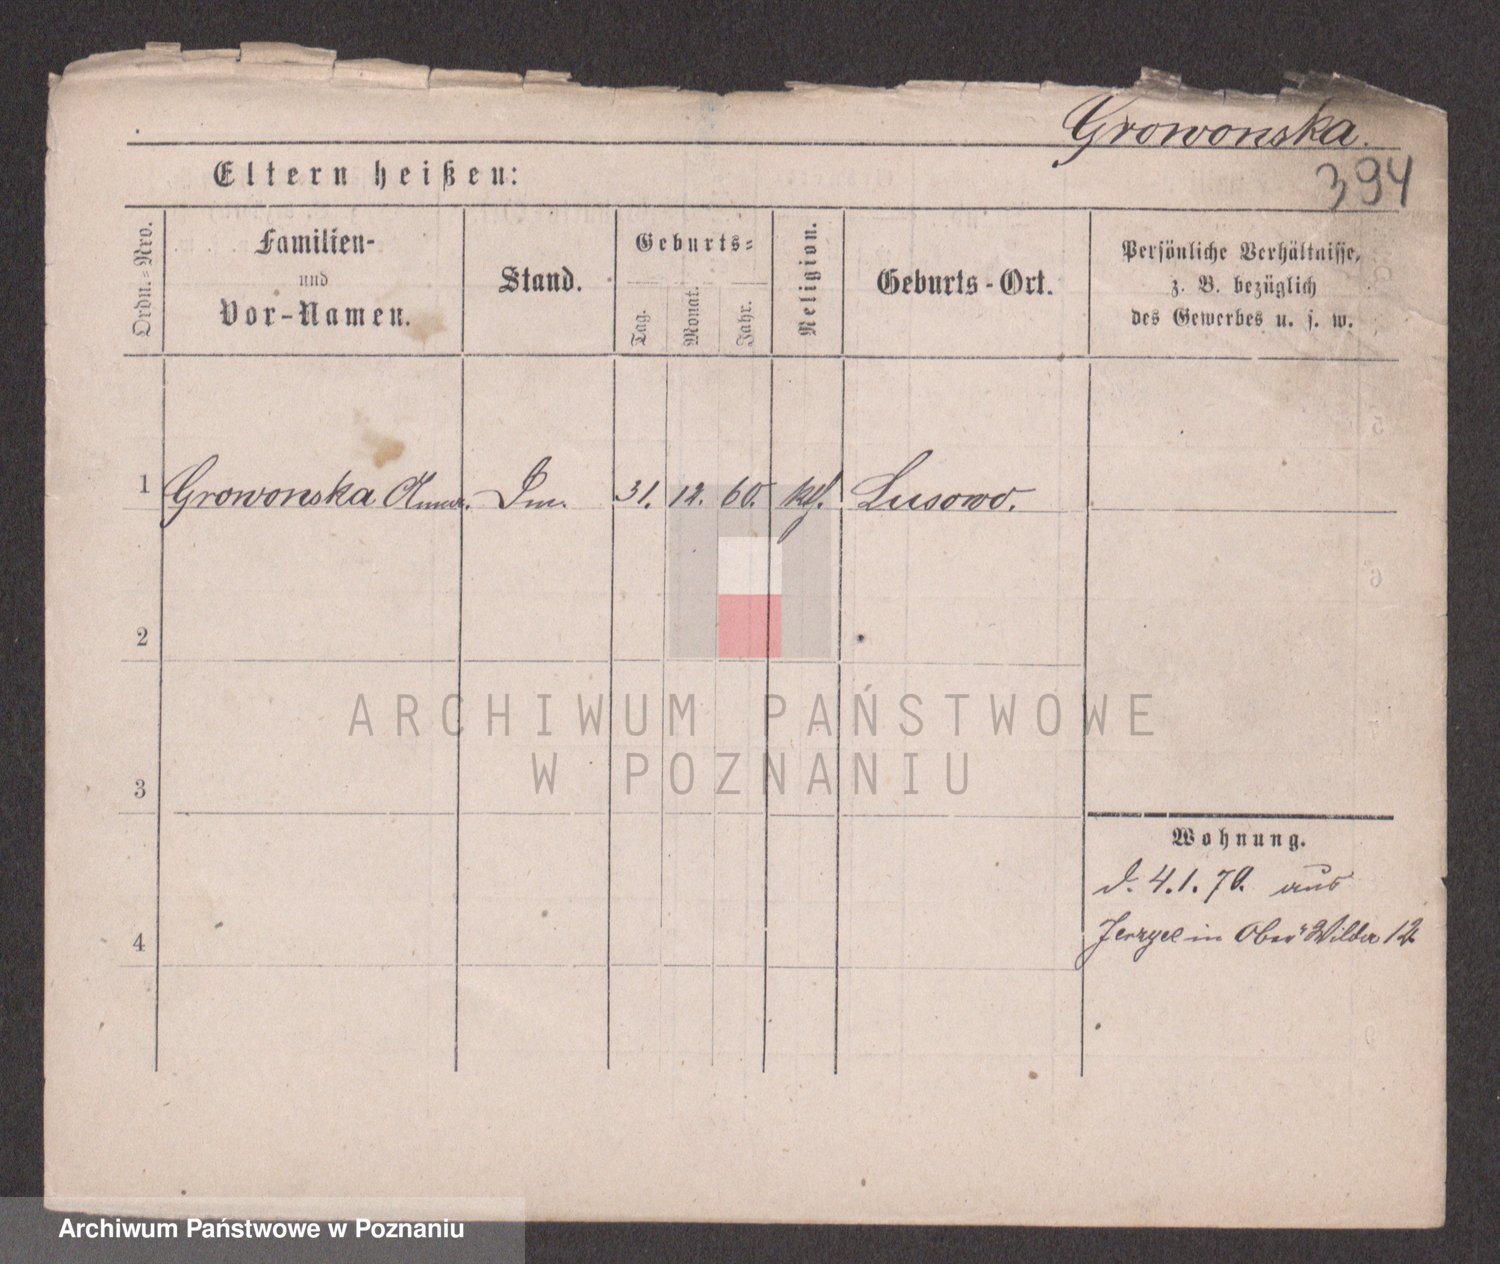 Growonska.
394
Eltern heißen:
Ordn.=Nro.
Familien-
und
Vor-Namen.
Stand.
Geburts=
Tag.
Monat.
Jahr.
Religion.
Geburts-Ort.
Persönliche Verhältnisse,
z. B. bezüglich
des Gewerbes u. s. w.
1 Growonska Anna. 31. 12. 60. kth. Lusowo.
2
3
4
Wohnung.
d. 4.1.70. aus
in Ober Wilda 12
ARCHIWUM PAŃSTWOWE
W POZNANIU
Archiwum Państwowe w Poznaniu